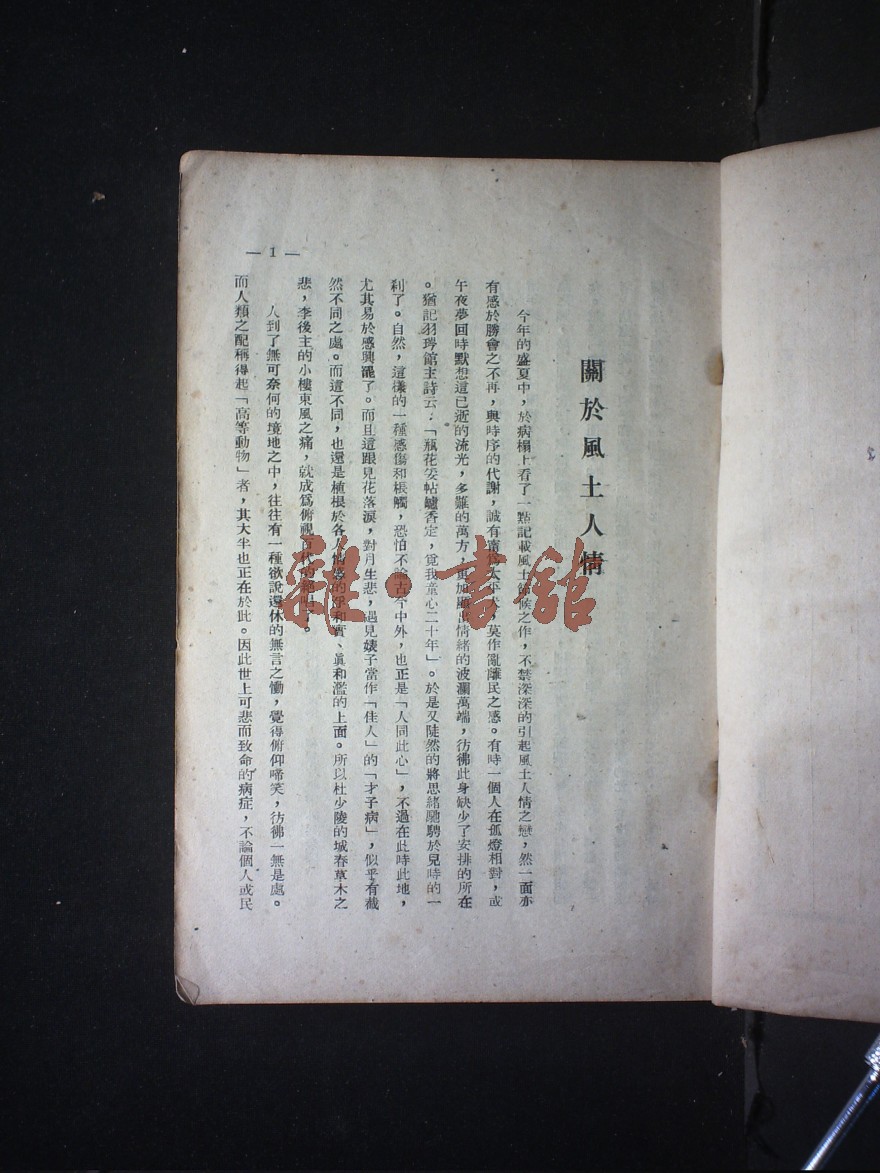 關於風土人情
今年的盛夏中，於病榻上看了一點記載風土節候之作，不禁深深的引起風土人情之戀，然一面亦
有感於勝會之不再，與時序的代謝，誠有甯爲太平犬，莫作亂離民之感。有時一個人在孤燈相對，或
午夜夢回時默想這已逝的流光，多難的萬方，更加顯出情緒的波瀾萬端，彷彿此身缺少了安排的所在
。猶記羽琌館主詩云：「瓶花妥帖爐香定，覓我童心二十年」。於是又陡然的將思緒馳騁於兒時的一
刹了。自然，這樣的一種感傷和棖觸，恐怕不論古今中外，也正是「人同此心」，不過在此時此地，
尤其易於感興罷了。而且這跟見花落淚，對月生悲，遇見婊子當作「佳人」的「才子病」，似乎有截
然不同之處。而這不同，也還是植根於各人情感的浮和實、眞和濫的上面。所以杜少陵的城春草木之
悲，李後主的小樓東風之痛，就成爲俯視百代的絕唱了。
人到了無可奈何的境地之中，往往有一種欲說還休的無言之慟，覺得俯仰啼笑，彷彿一無是處。
而人類之配稱得起「高等動物」者，其大半也正在於此。因此世上可悲而致命的病症，不論個人或民
— 1 —
雜·書館